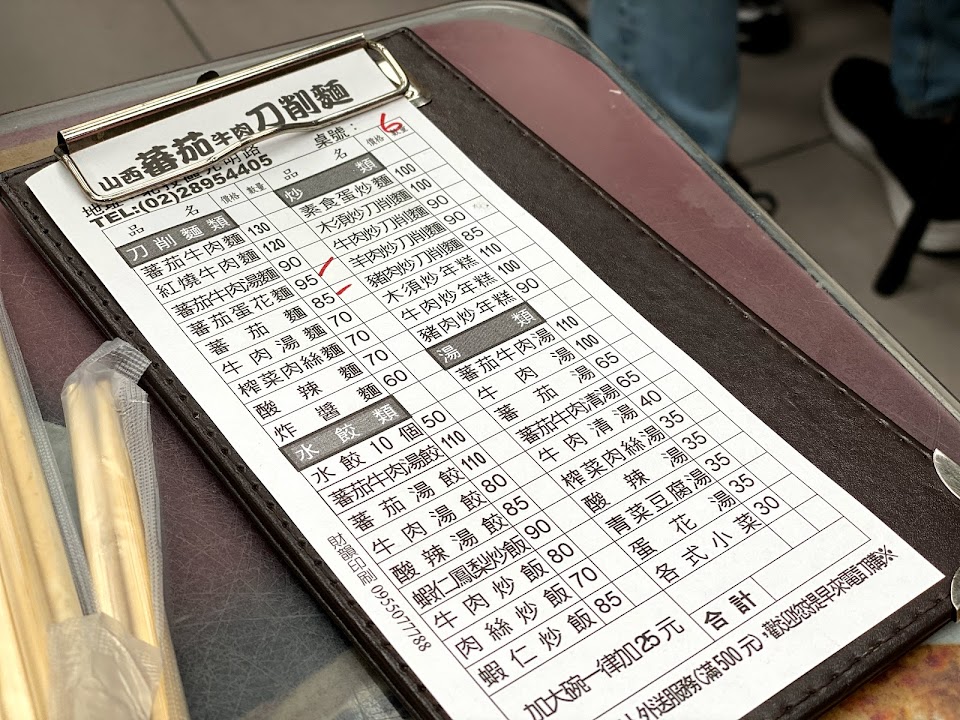 山西蕃茄牛肉刀削麵
桌號：6
TEL:(02)28954405
品名 價格 數量
刀削麵類
蕃茄牛肉麵 130
紅燒牛肉麵 120
蕃茄牛肉湯麵 90
蕃茄蛋花麵 95
蕃茄麵 85
牛肉湯麵 70
榨菜肉絲麵 70
酸辣麵 70
炸醬麵 60
水餃類
水餃10個 50
蕃茄牛肉湯餃 110
蕃茄湯餃 110
牛肉湯餃 80
酸辣湯餃 85
蝦仁鳳梨炒飯 90
牛肉炒飯 80
肉絲炒飯 70
蝦仁炒飯 85
品名 價格 數量
炒類
素食蛋炒麵 100
木須炒刀削麵 100
牛肉炒刀削麵 90
羊肉炒刀削麵 90
豬肉炒刀削麵 85
木須炒年糕 110
牛肉炒年糕 100
豬肉炒年糕 90
湯類
蕃茄牛肉湯 110
牛肉湯 100
蕃茄湯 65
蕃茄牛肉清湯 65
牛肉清湯 40
榨菜肉絲湯 35
酸辣湯 35
青菜豆腐湯 35
蛋花湯 35
各式小菜 30
加大碗一律加25元
合計
外送服務(滿500元),歡迎您提早來電訂購※
財韻印刷 0955077788